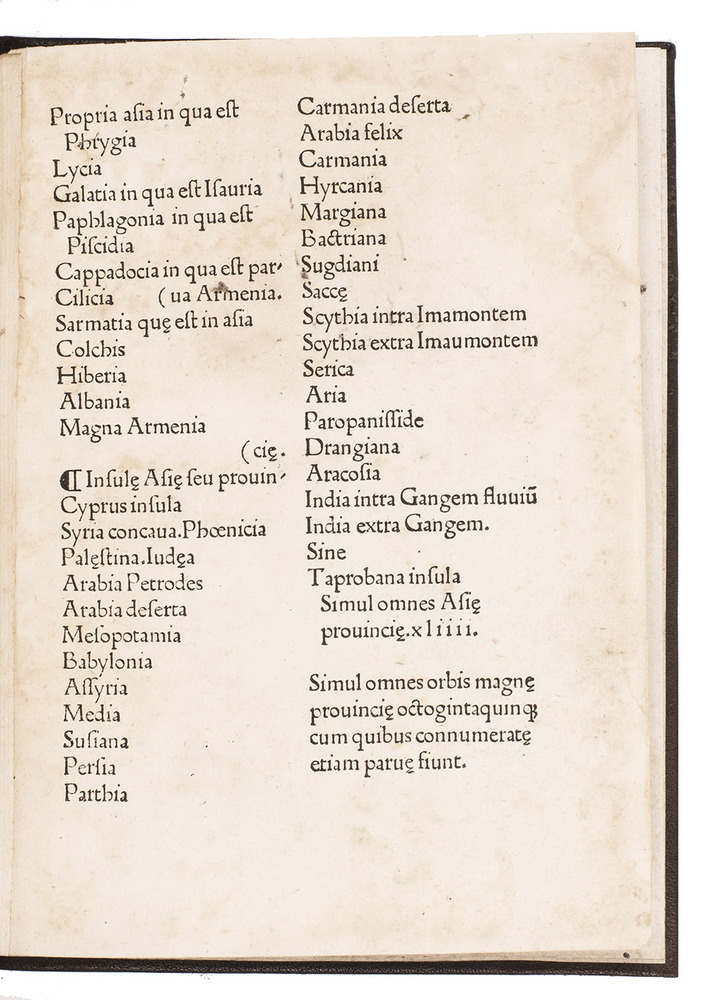 Propria aſia in qua eſt
Phrygia
Lycia
Galatia in qua eſt Iſauria
Paphlagonia in qua eſt
Piſcidia
Cappadocia in qua eſt par⸗
Cilicia (ua Armenia.
Sarmatia quę eſt in aſia
Colchis
Hiberia
Albania
Magna Armenia
(cię.
¶ Inſulę Aſię ſeu prouin⸗
Cyprus inſula
Syria concaua.Phœnicia
Palęſtina.Iudęa
Arabia Petrodes
Arabia deſerta
Meſopotamia
Babylonia
Aſſyria
Media
Suſiana
Perſia
Parthia
Carmania deſerta
Arabia felix
Carmania
Hyrcania
Margiana
Bactriana
Sugdiani
Saccę
Scythia intra Imamontem
Scythia extra Imaumontem
Serica
Aria
Paropaniſſide
Drangiana
Aracoſia
India intra Gangem fluuiū
India extra Gangem.
Sine
Taprobana inſula
Simul omnes Aſię
prouincię.xliiii.
Simul omnes orbis magnę
prouincię octogintaquinqꝫ
cum quibus connumeratę
etiam paruę fiunt.